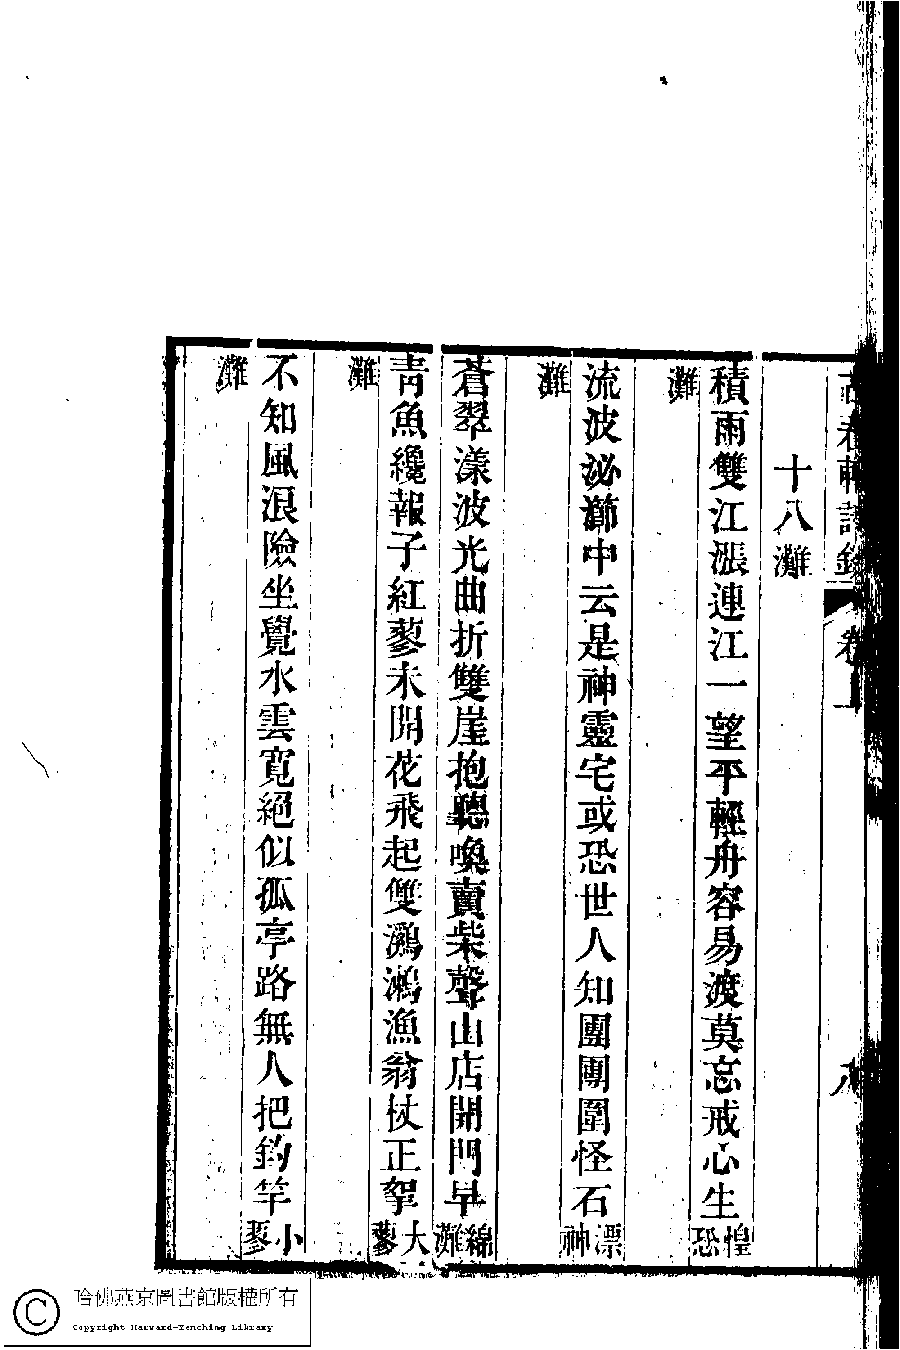 十八灘
積雨雙江漲連江一望平輕舟容易渡莫忘戒心生惶恐
灘
流波泌瀄中云是神靈宅或恐世人知團團圍怪石漂神
灘
蒼翠漾波光曲折雙崖抱聽喚賣柴聲山店開門早綿灘
青魚纔報子紅蓼未開花飛起雙鸂鶒漁翁杖正挐大蓼
灘
不知風浪險坐覺水雲寬絕似孤亭路無人把釣竿小蓼
灘
哈佛燕京圖書館版權所有
Copyright Harvard-Yenching Library